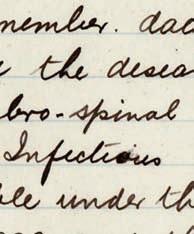 nember. dad
the disea
bro-spinal
Infectious
ble under th